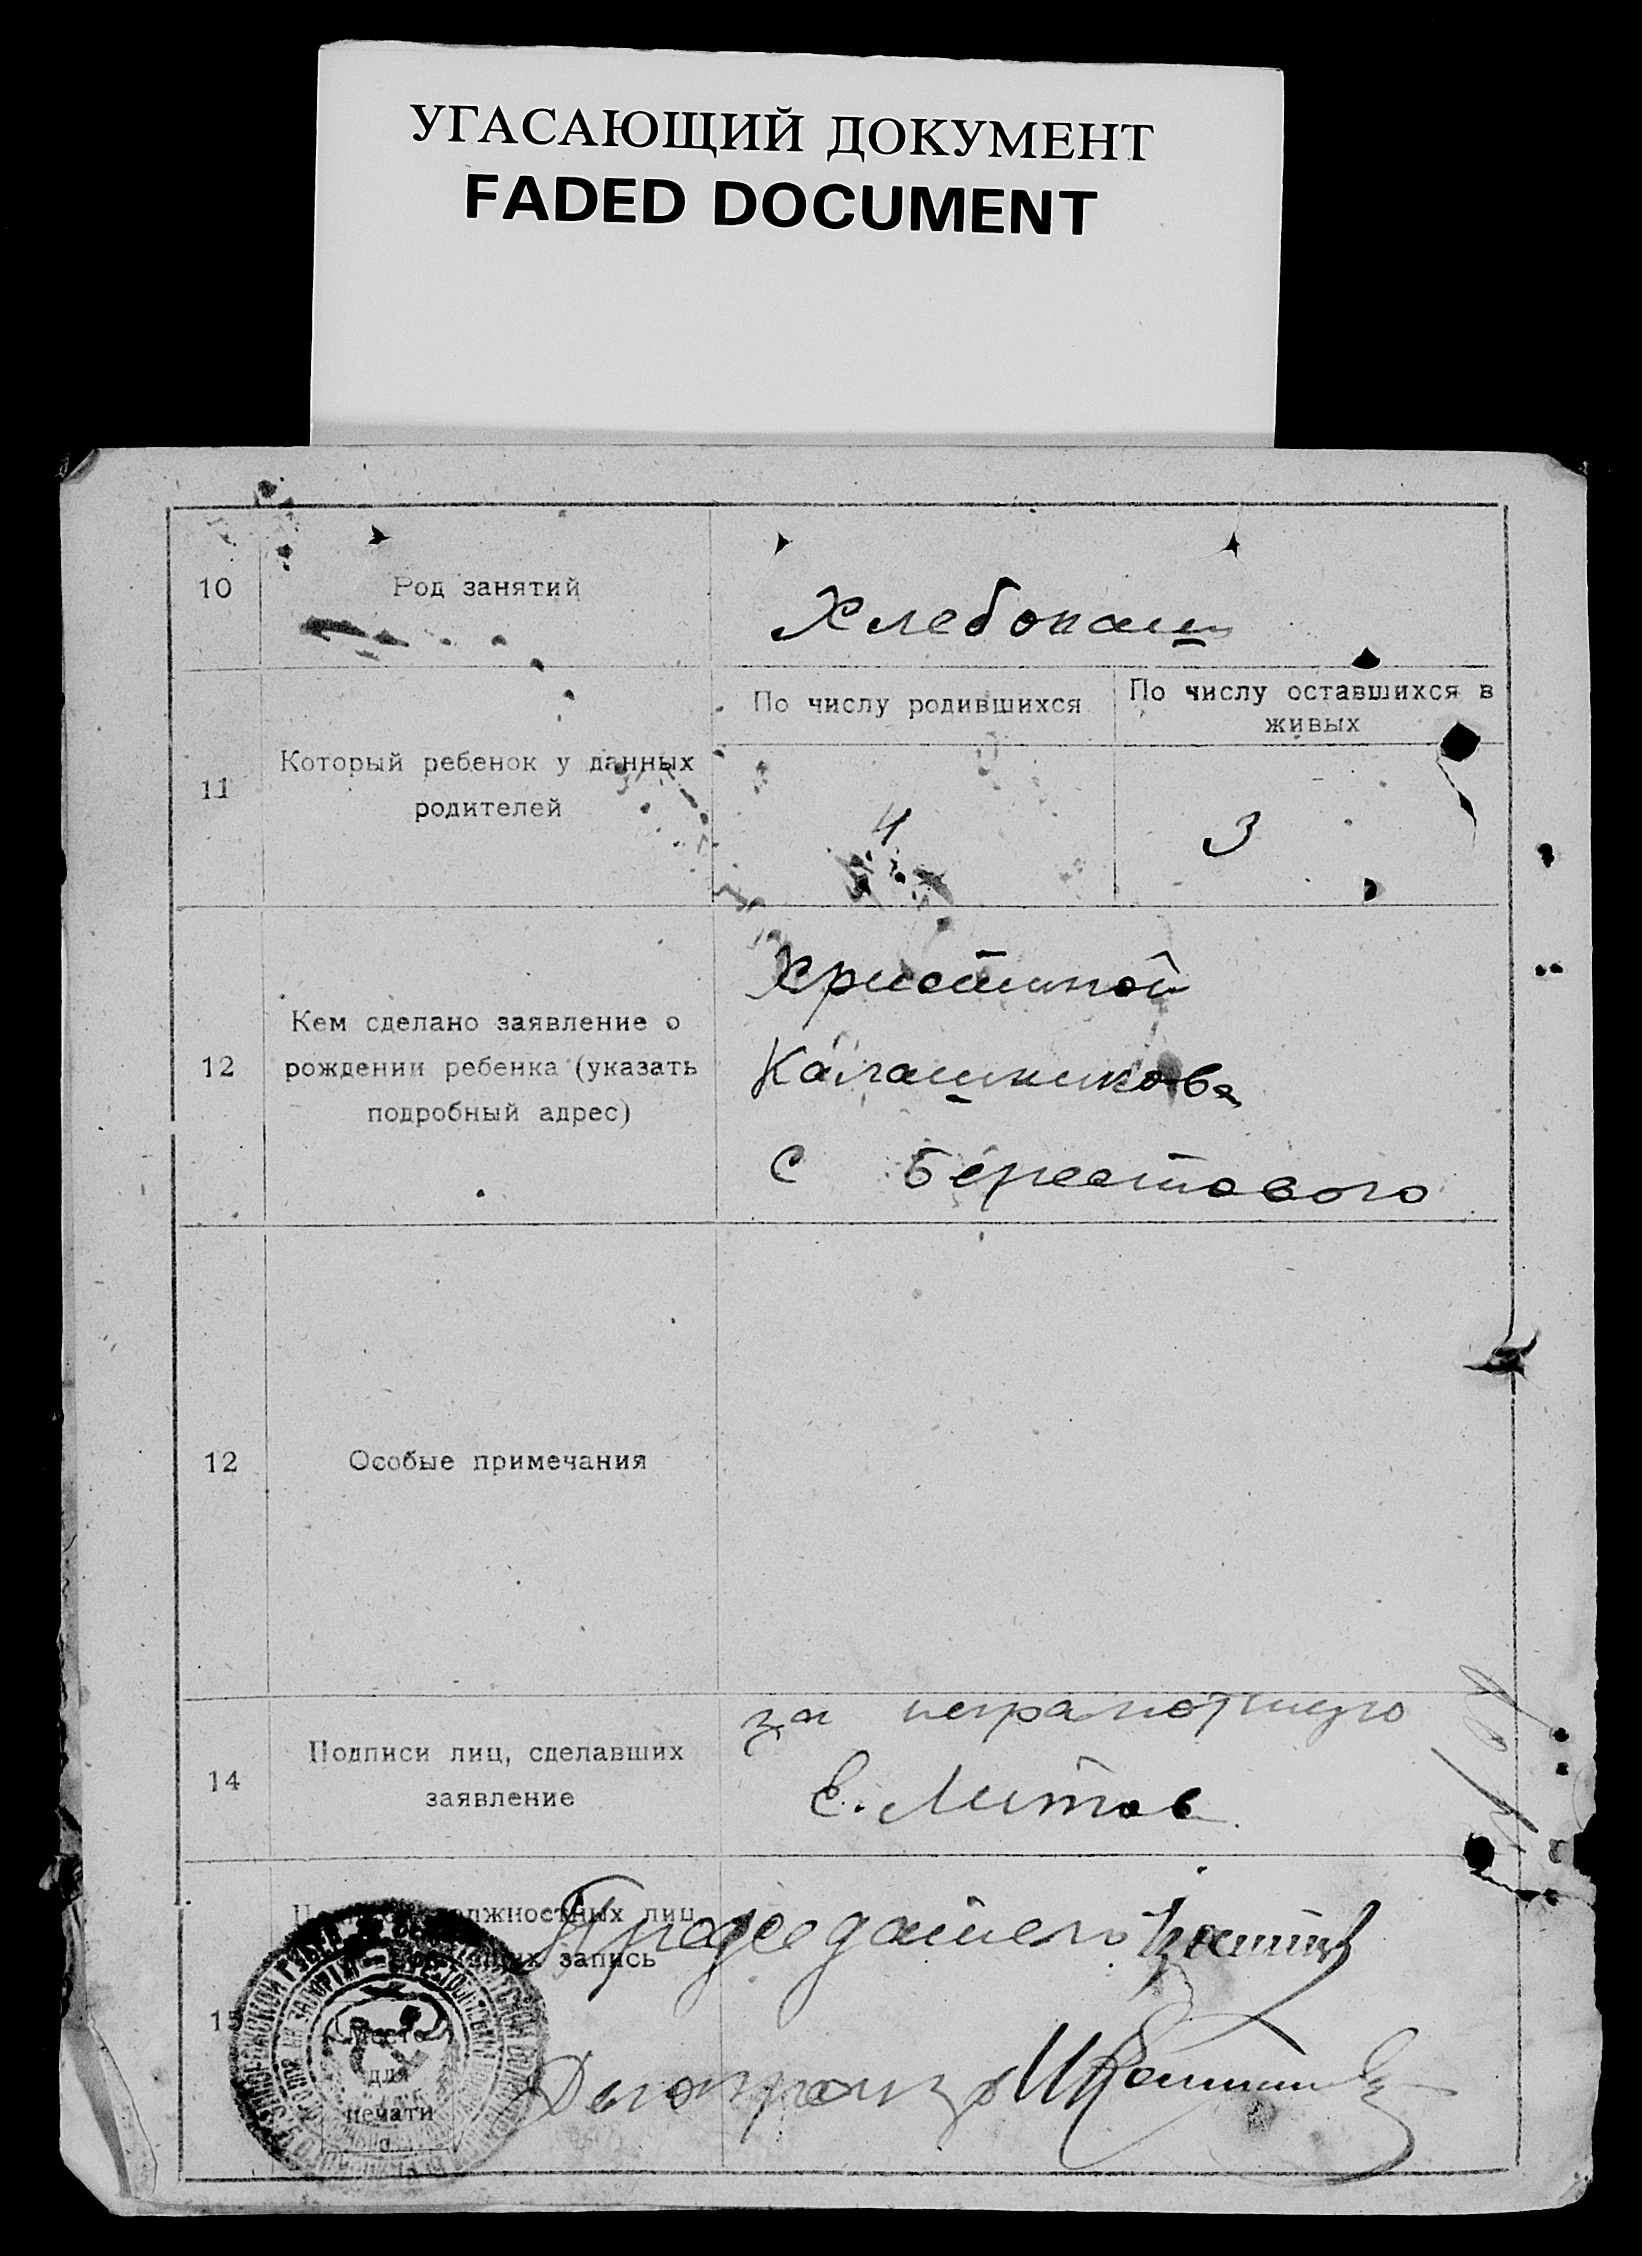 УГАСАЮЩИЙ ДОКУМЕНТ
FADED DOCUMENT
10
Род занятий
Хлебопаш
11
Который ребенок у данных
родителей
По числу родившихся
По числу оставшихся в
живых
4
3
12
Кем сделано заявление о
рождении ребенка (указать
подробный адрес)
Христиной
Калашникова
с Берестового
12
Особые примечания
14
Подписи лиц, сделавших
заявление
за неграмотного
Е. Литов
15
должностных лиц
запись
Председатель
Место
для
печати
Делопроизв